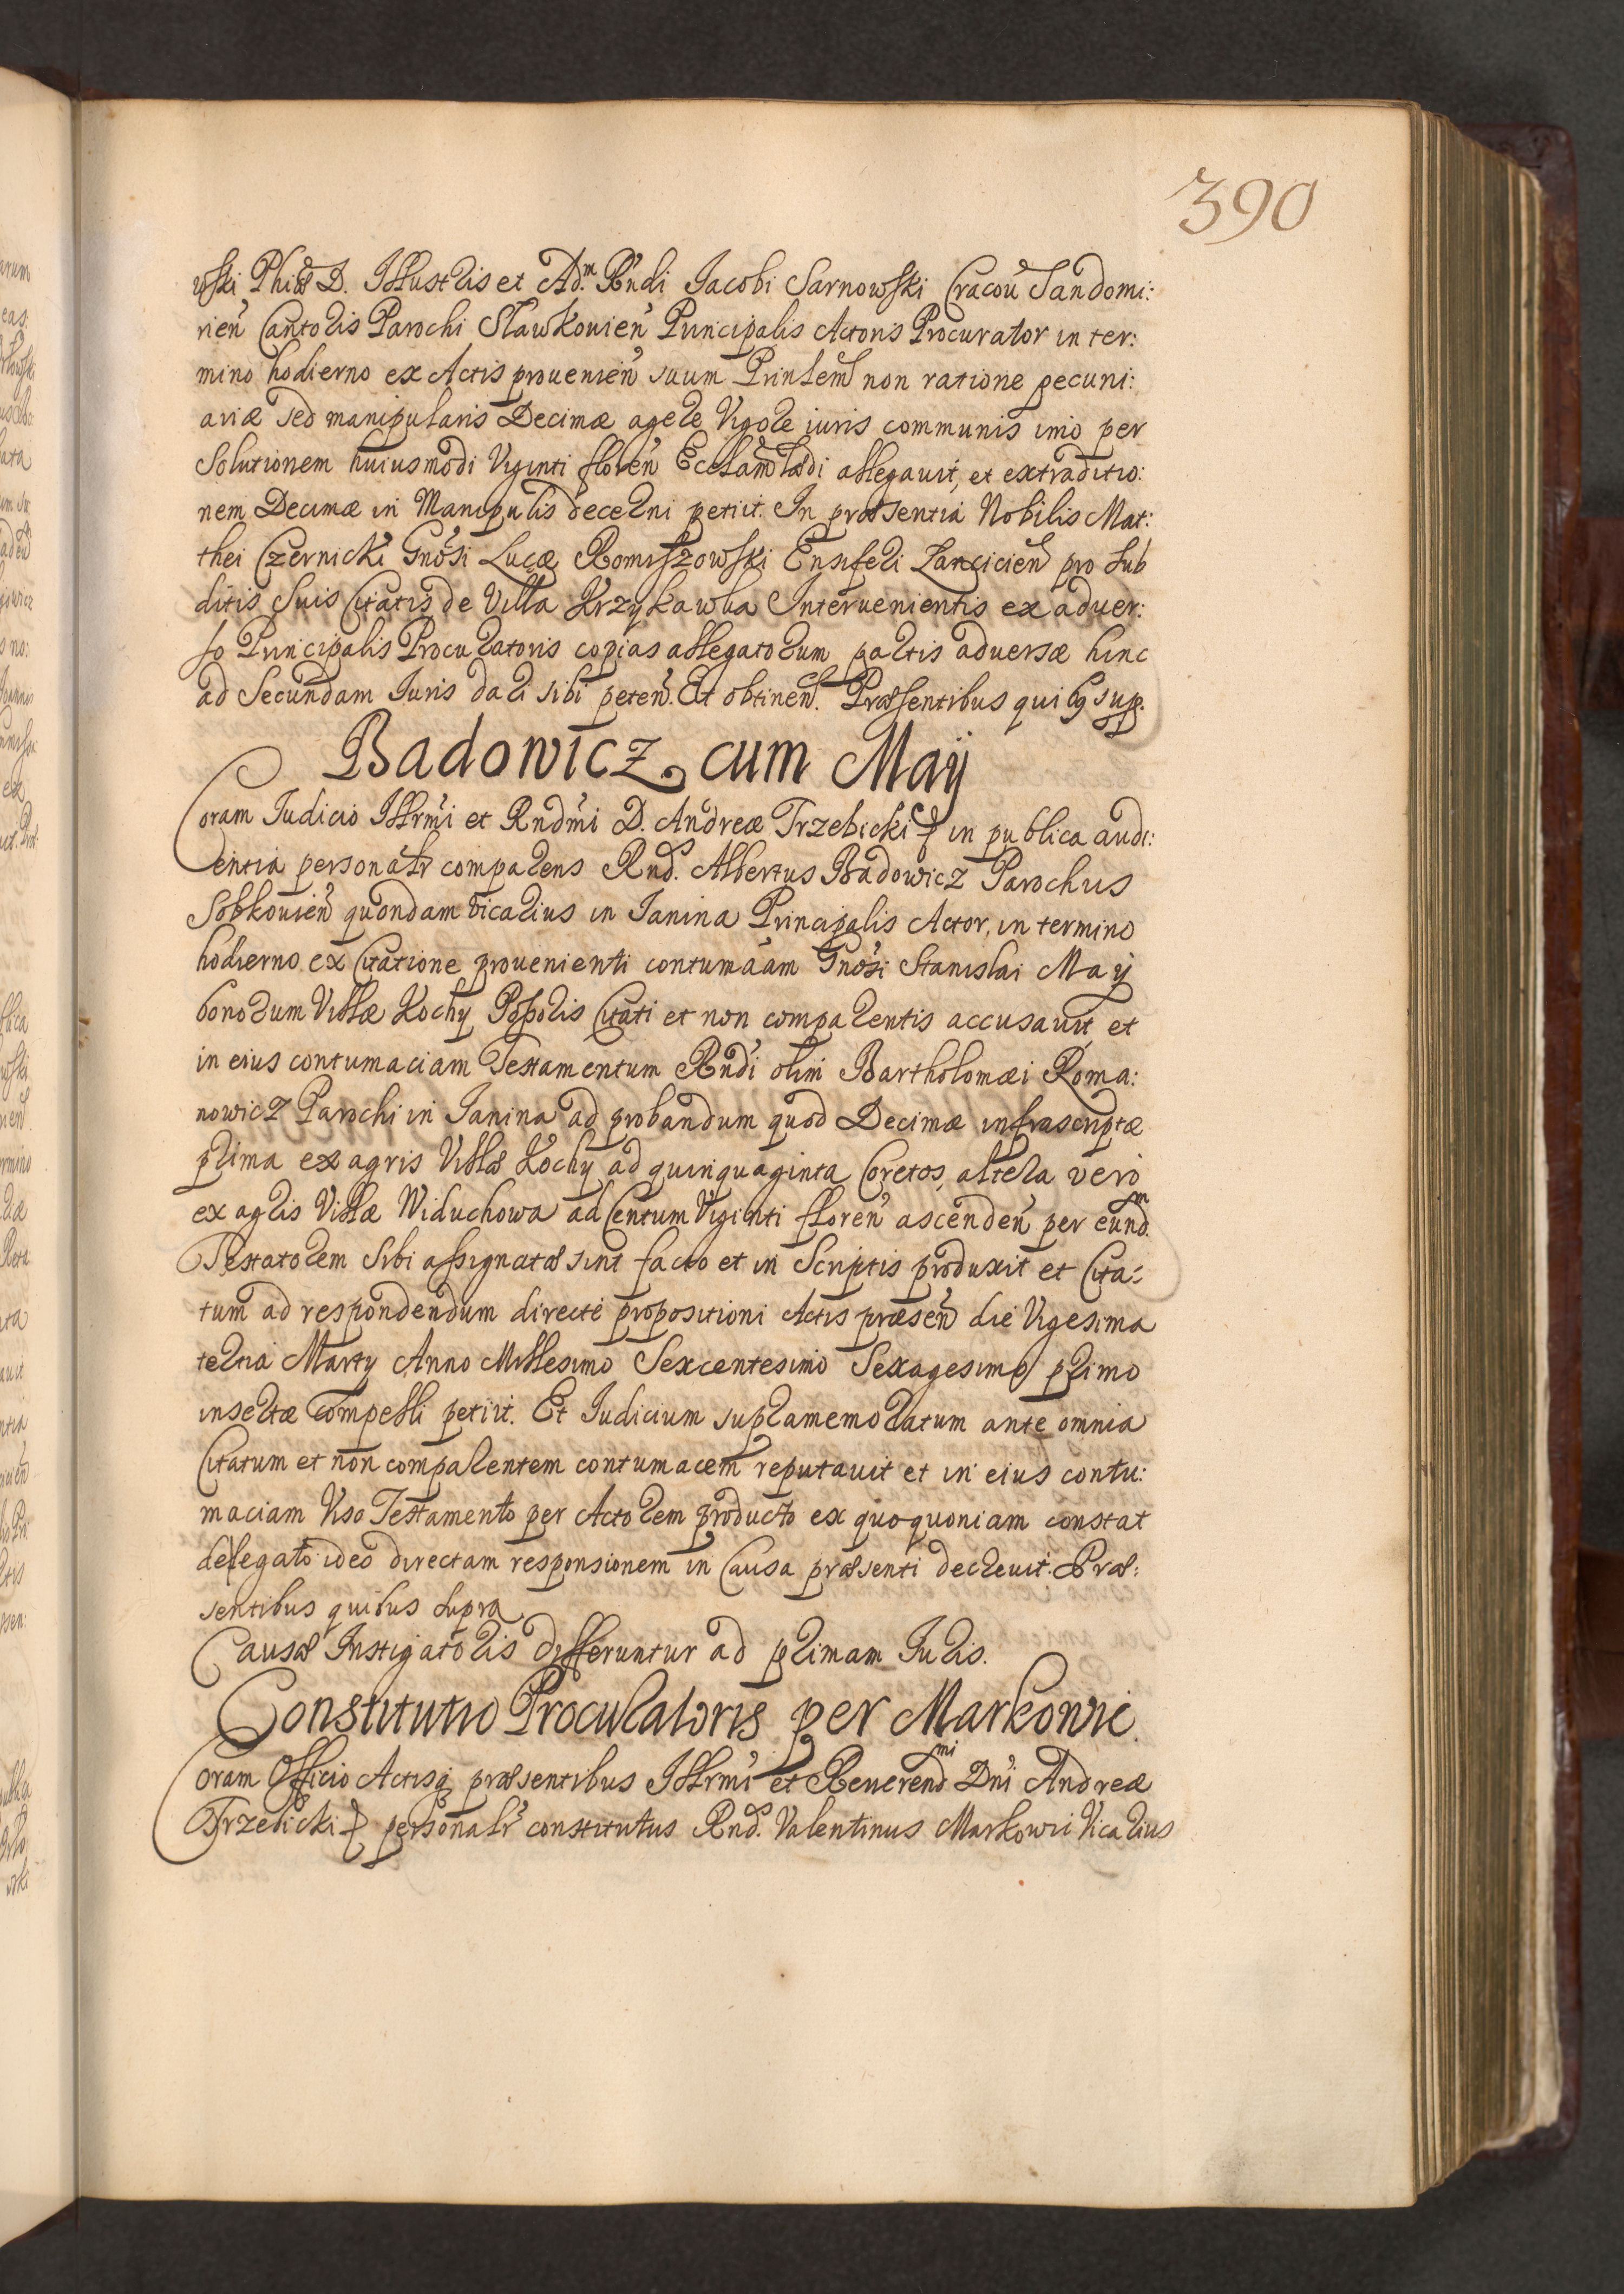 390
wski Phiæ D. Illustris et Adm. Rndi Jacobi Sarnowski Cracou Sandomi:
rien Cantoris Parochi Sławkouien Principalis Actoris Procurator in ter:
mino hodierno ex Actis prouenien suum Prinlem non ratione pecuni:
ariæ sed manipularis Decimæ agere Vigore iuris communis imo per
Solutionem huiusmodi Viginti floren Ecclam lædi allegauit, et extraditio:
nem Decimæ in Manipulis decerni petiit. In præsentia Nobilis Mat:
thei Czernicki Gnosi Lucæ Romiszowski Ensiferi Lancicien pro Sub
ditis Suis Citatis de Villa Krzykawka Interuenientis ex aduer:
so Principalis Procuratoris copias allegatorum partis aduersæ hinc
ad Secundam Juris dari sibi peten. Et obtinen. Præsentibus quibq sup.
Badowicz cum Maÿ
Coram Judicio Illrmi et Rndmi D. Andreæ Trzebicki in publica audi:
entia personalr comparens Rnd. Albertus Badowicz Parochus
Sobkouien quondam vicarius in Janina Principalis Actor, in termino
hodierno ex Citatione prouenienti contumaam Gnosi Stanislai Maÿ
bonorum Villæ Kochy Possoris Citati et non comparentis accusauit, et
in eius contumaciam Testamentum Rndi olim Bartholomæi Roma:
nowicz Parochi in Janina ad probandum quod Decimæ infrascriptæ
prima ex agris Villæ Kochy ad quinquaginta Coretos, altera vero
ex agris Villæ Widuchowa ad Centum Viginti floren ascenden per eundm
Testatorem Sibi assignatæ sint facto et in Scriptis produxit et Cita:
tum ad respondendum directe propositioni Actis præsen die Vigesima
tertia Marty Anno Millesimo Sexcentesimo Sexagesimo primo
insertæ Compelli petiit. Et Judicium supramemoratum ante omnia
Citatum et non comparentem contumacem reputauit et in eius contu:
maciam Viso Testamento per Actorem producto ex quo quoniam constat
delegato ideo directam responsionem in Causa præsenti decreuit. Præ:
sentibus quibus Supra
Causæ Instigatoris differuntur ad primam Juris.
Constitutio Procuratoris per Markowic
Coram Officio Actisq præsentibus Illrmi et Reuerendmi Dni Andreæ
Trzebicki personalr constitutus Rnd. Valentinus Markowic Vicarius